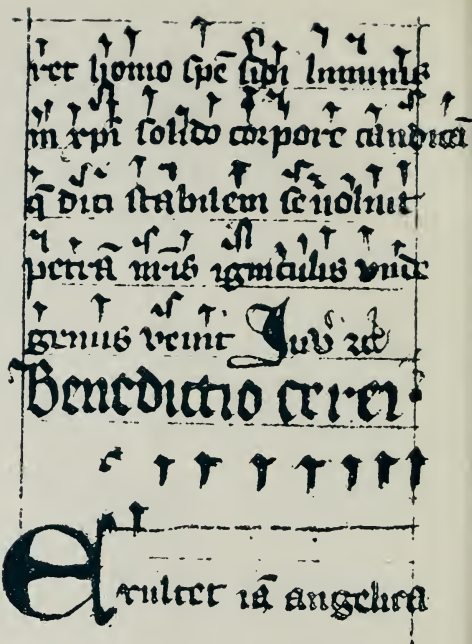 ret homo spē sibi luminis
in xpī solido corpore conditā
q̄ dici stabilem se uoluit
petrā nr̄is igniculis vnde
genus venit
Benedictio cerei
Exultet iā angelica